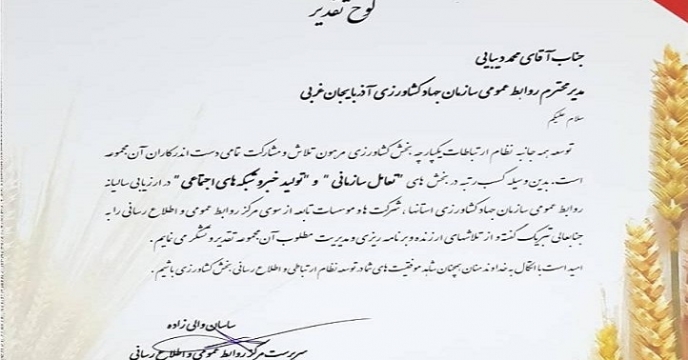 لوح تقدیر
جناب آقای محمد دیبایی
مدیر محترم روابط عمومی سازمان جهاد کشاورزی آذربایجان غربی
سلام علیکم
توسعه همه جانبه نظام ارتباطات یکپارچه بخش کشاورزی مرهون تلاش و مشارکت تمامی دست اندرکاران آن مجموعه
است. بدین وسیله کسب رتبه در بخش های "تعامل سازمانی" و "تولید خبر و شبکه های اجتماعی" در ارزیابی سالیانه
روابط عمومی سازمان جهاد کشاورزی استانها ، شرکت ها و موسسات تابعه از سوی مرکز روابط عمومی و اطلاع رسانی را به
جنابعالی تبریک گفته و از تلاشهای ارزنده و برنامه ریزی و مدیریت مطلوب آن مجموعه تقدیر و تشکر می نمایم .
امید است با اتکال به خداوند منان همچنان شاهد موفقیت های شما در توسعه نظام ارتباطی و اطلاع رسانی بخش کشاورزی باشیم .
ساسان والی زاده
سرپرست مرکز روابط عمومی و اطلاع رسانی